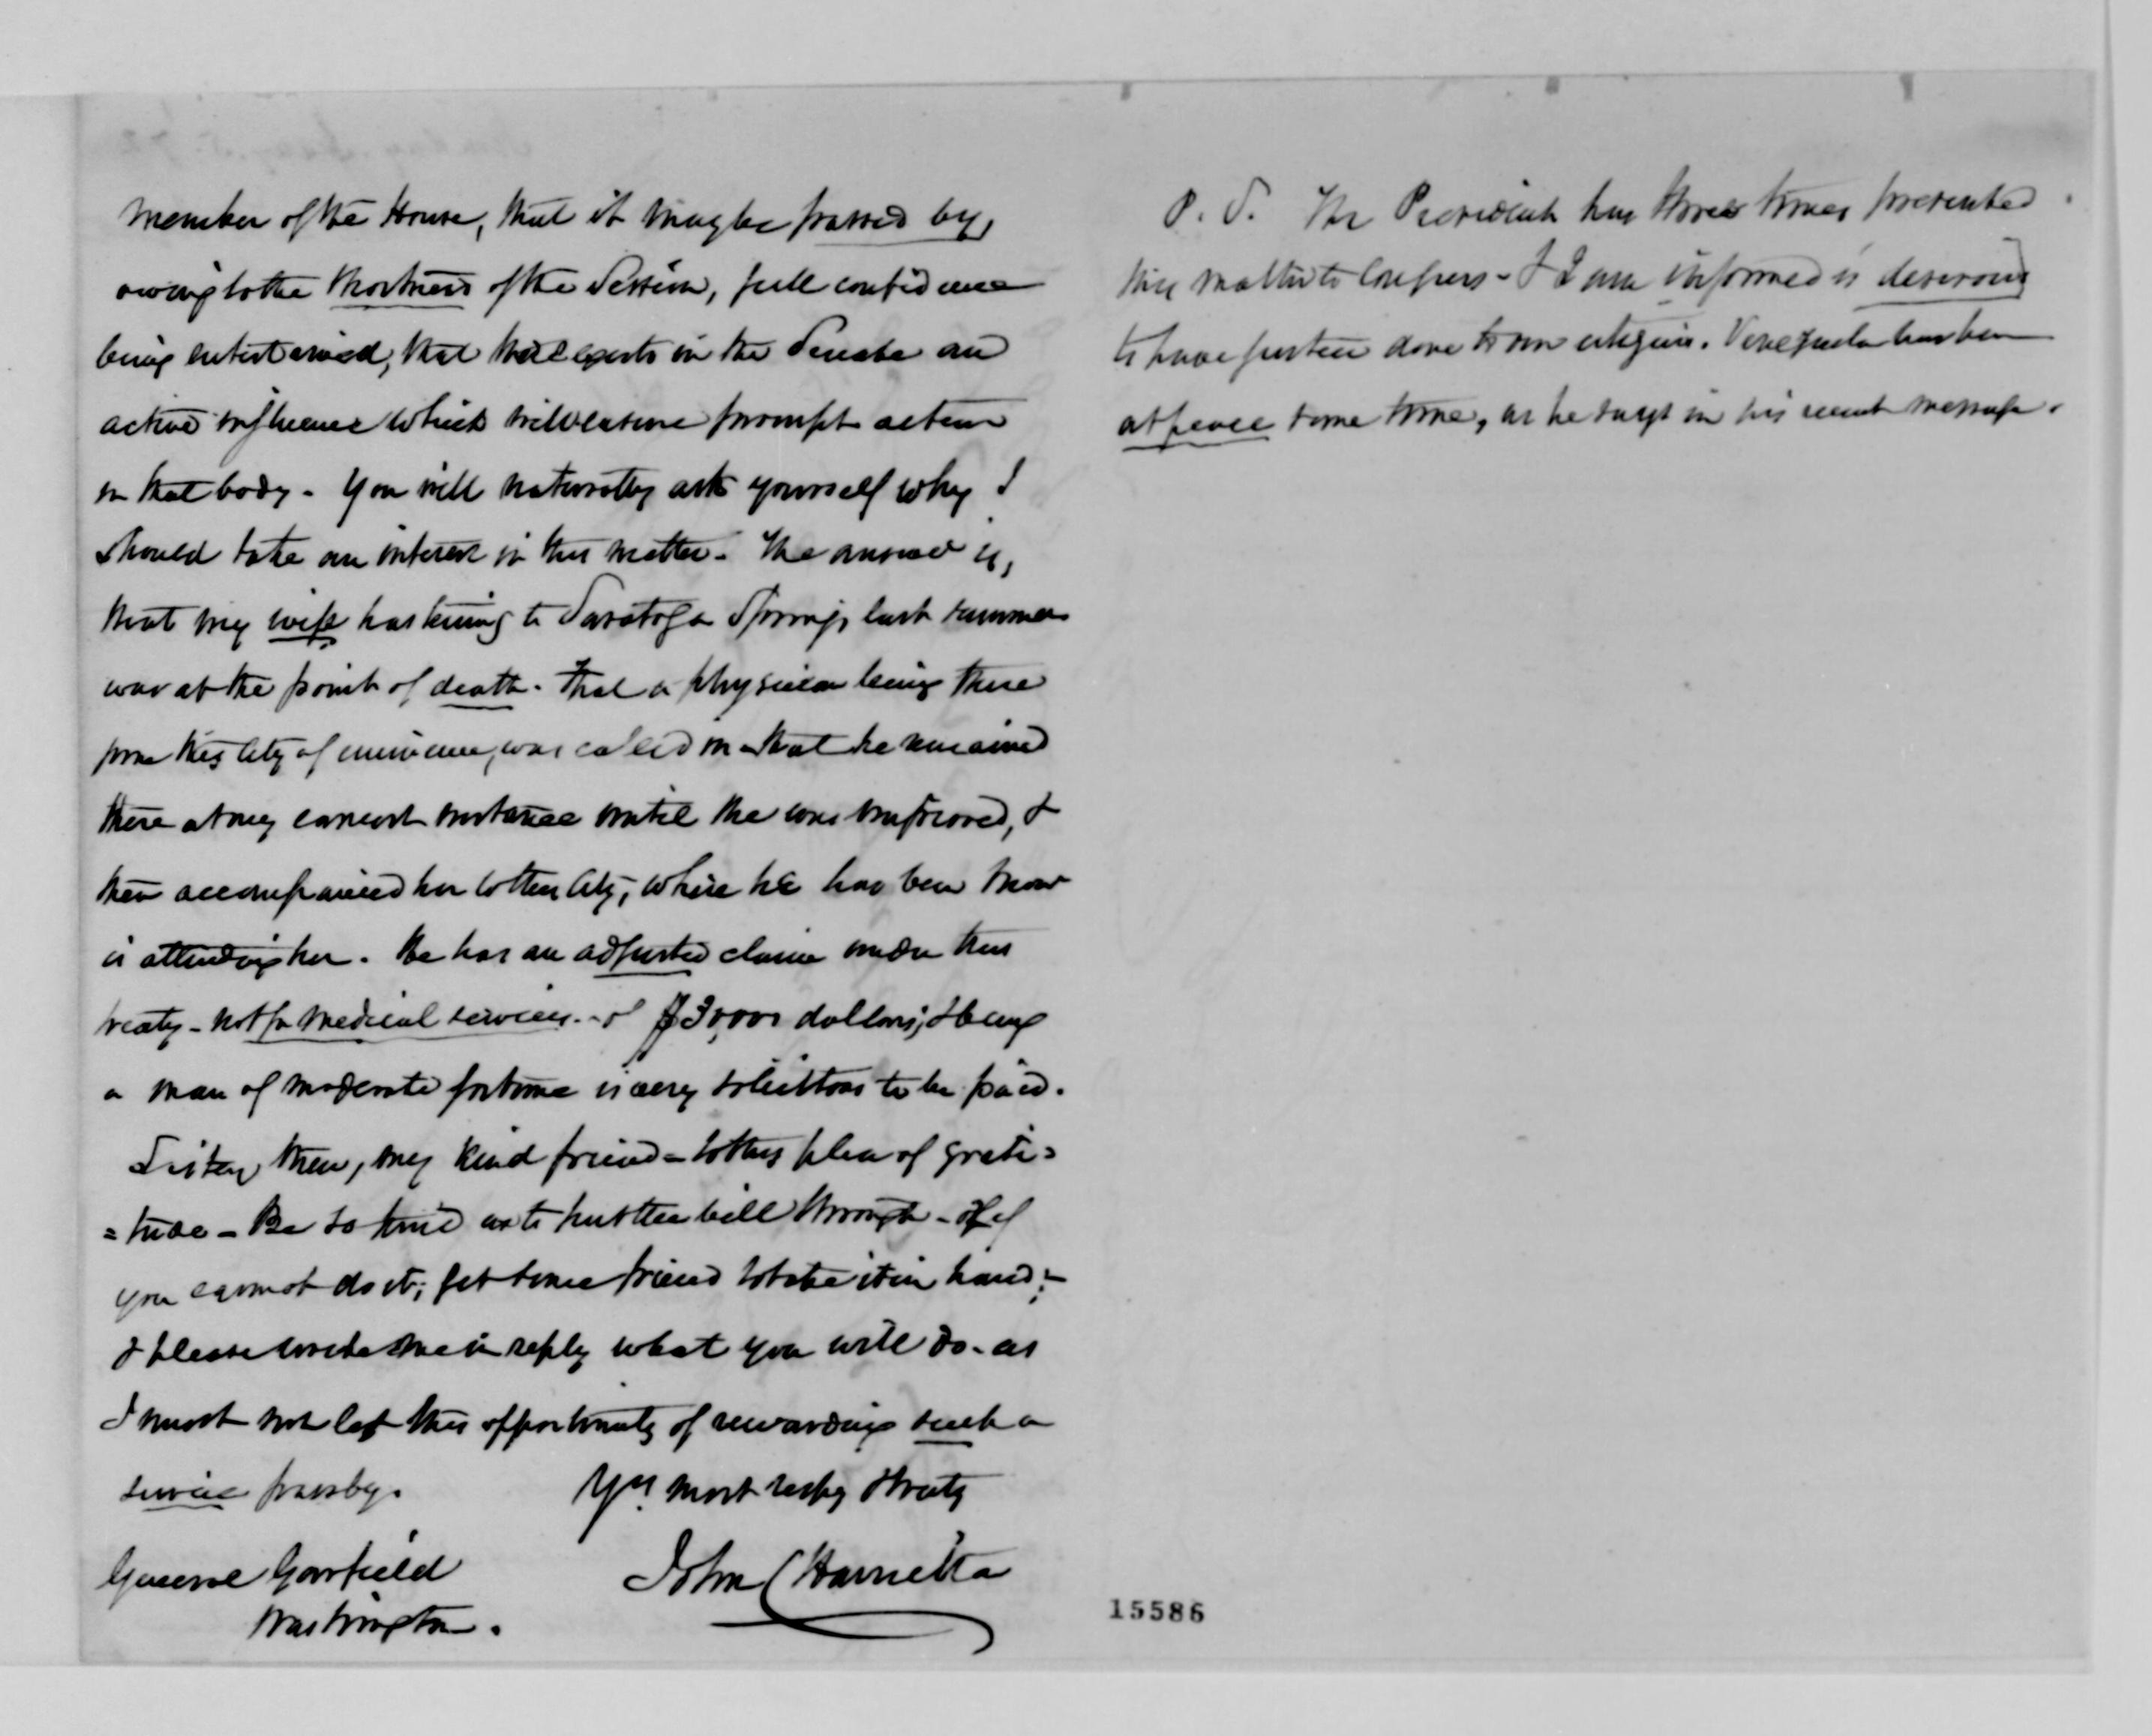 member of the House, that it may be passed by,
owing to the shortness of the Session, full confidence
being entertained, that there exists in the Senate an
active influence which will ensure prompt action
in that body - You will naturally ask yourself why I
should take an interest in this matter - The answer is,
that my wife hastening to Saratoga Springs last summer
was at the point of death - that a physician being there
from this City of eminence, was called in - that he remained
there at my earnest instance until she was improved, &
then accompanied her to this City, where he has been & now
is attending her. He has an adjusted claim under this
treaty - not for medical services - of $30,000 dollars; & being
a man of moderate fortune is very solicitous to be paid.
Listen then, my kind friend - to this plea of grati=
=tude - Be so kind as to put the bill through - or if
you cannot do it; get some friend to take it in hand;-
& please write me in reply what you will do - as
I must not let this opportunity of rewarding such a
service pass by.
Yrs most respy & truly
John C Hamilton
General Garfield
Washington.
P. S. The President has three times presented
this matter to Congress - & I am informed is desirous
to have justice done to our citizens. Venezuela has been
at peace some time, as he says in his recent message.
15586